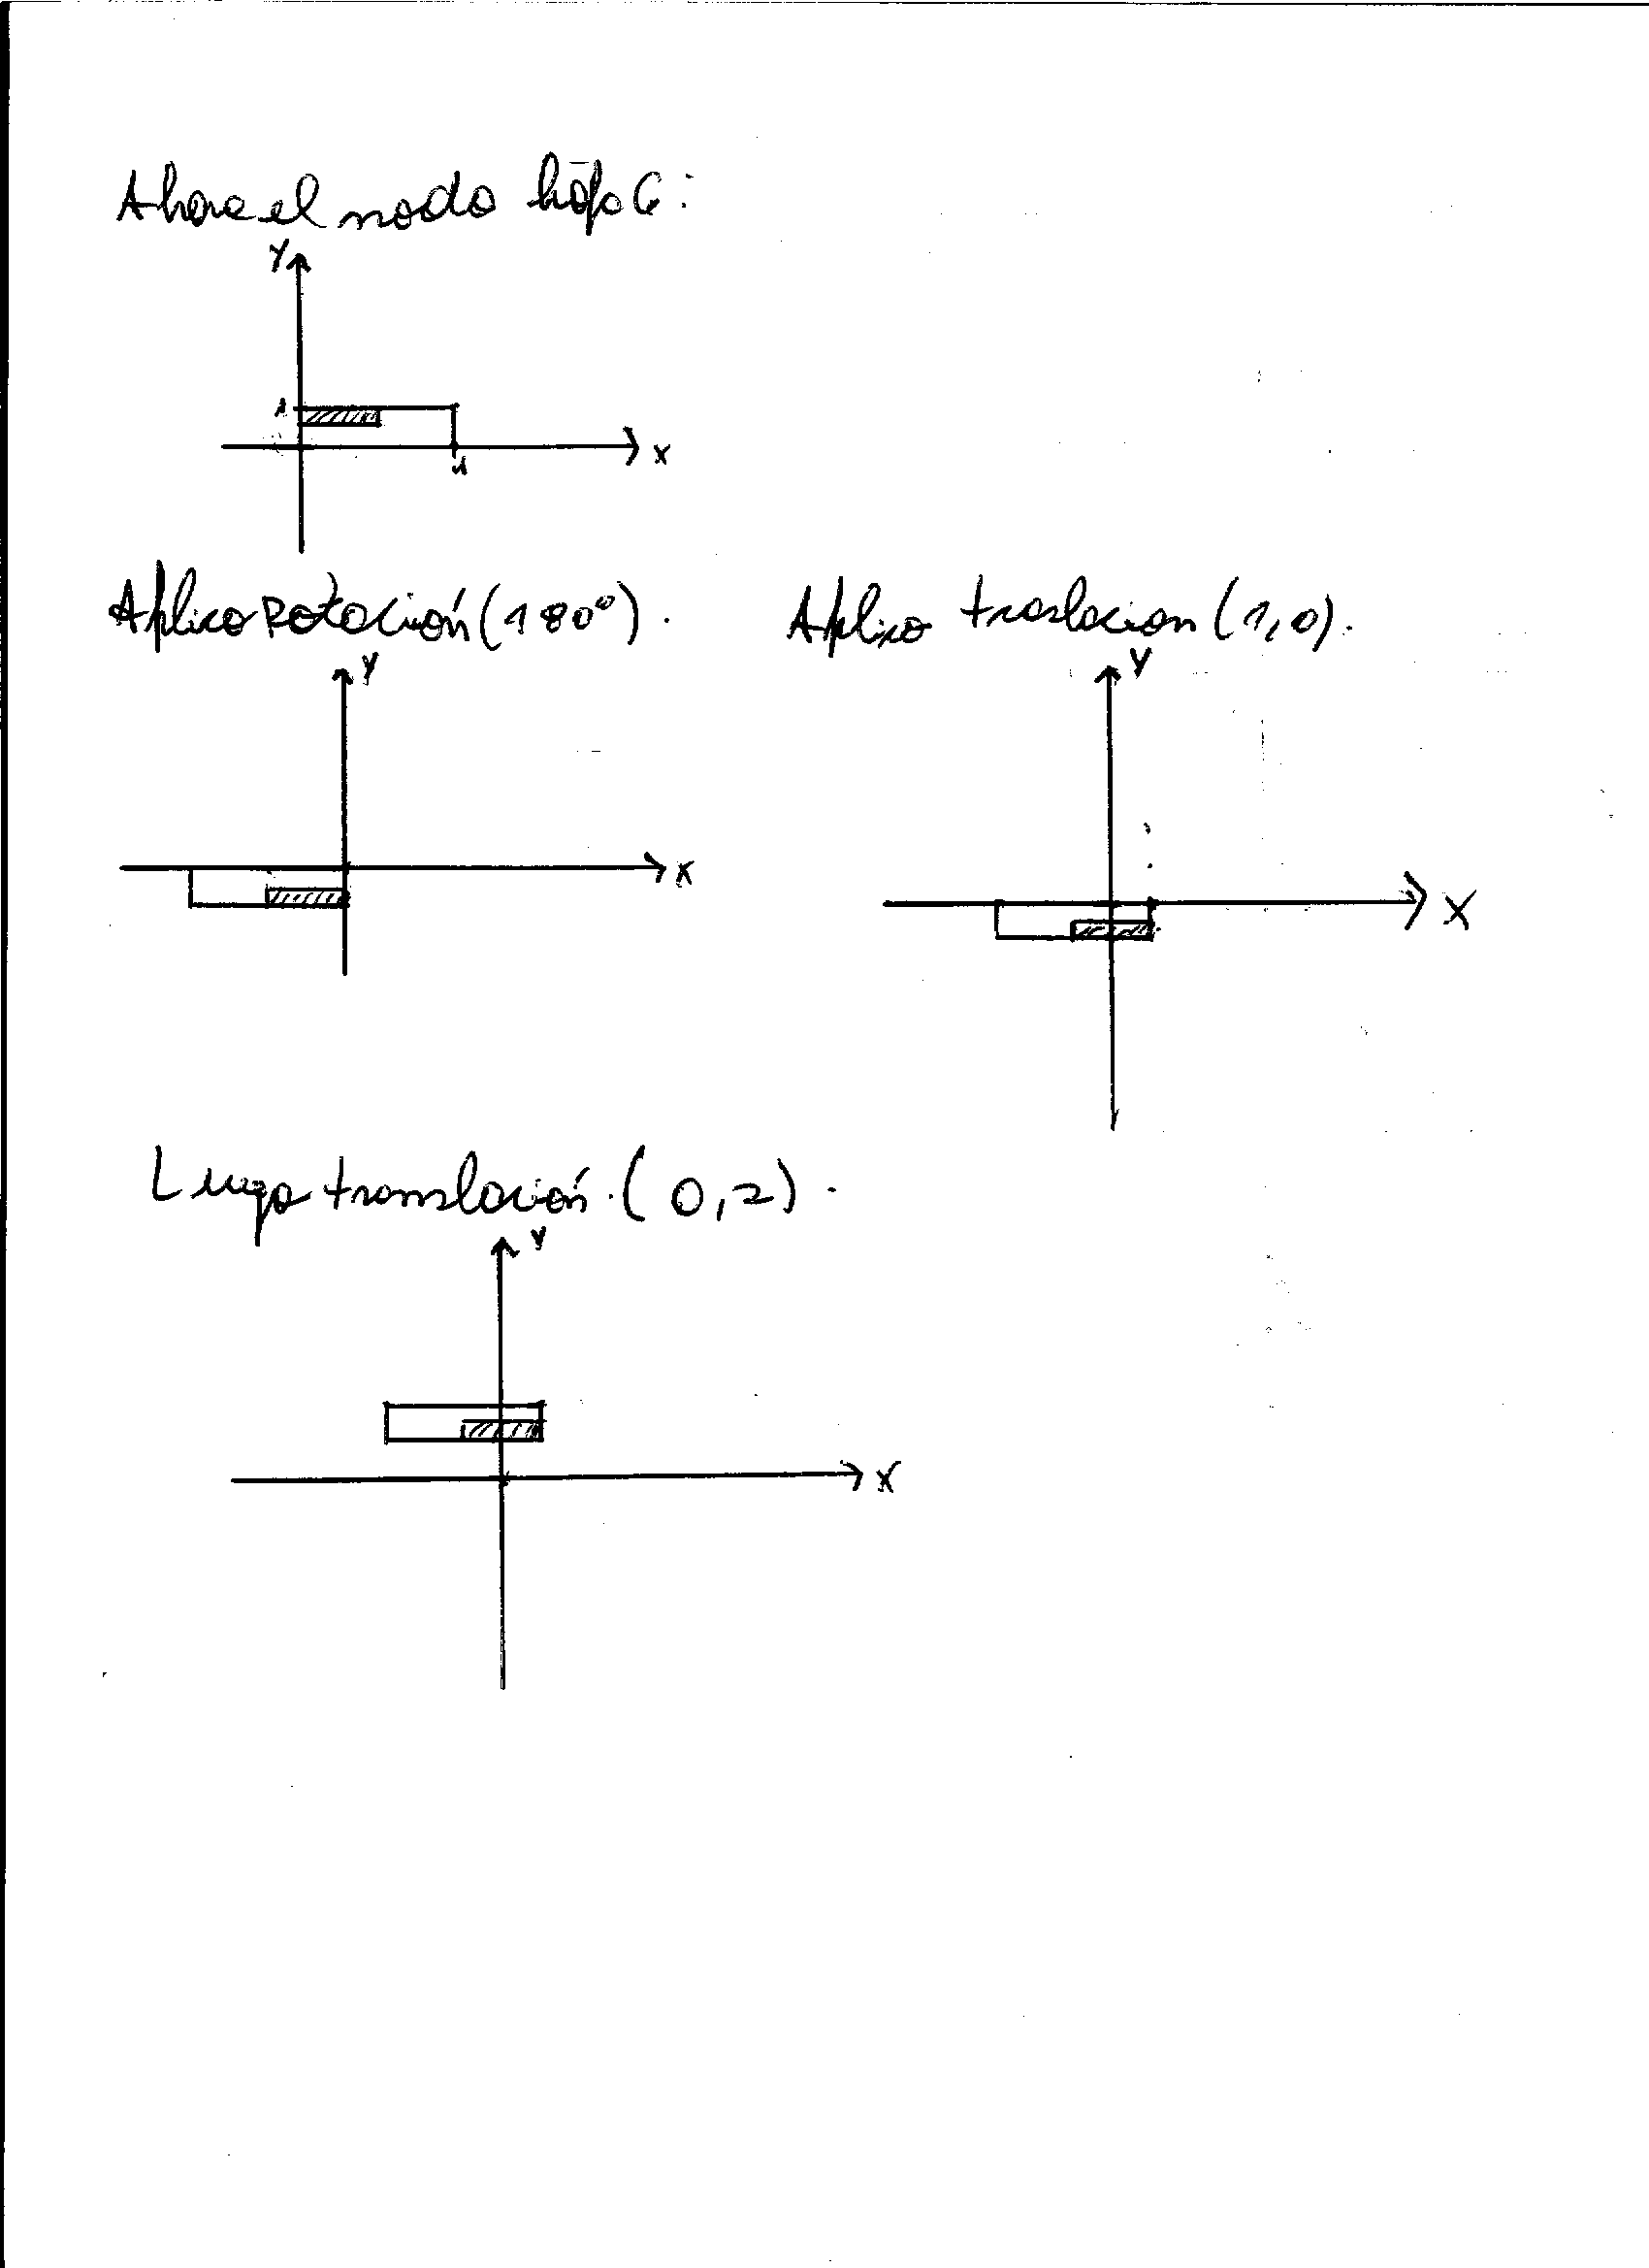 Ahora el nodo hoja 6:
Y
1
1 X
Aplico Rotación (180°). Aplico traslacion (1,0).
Y Y
X X
Luego translación (0,2).
Y
X